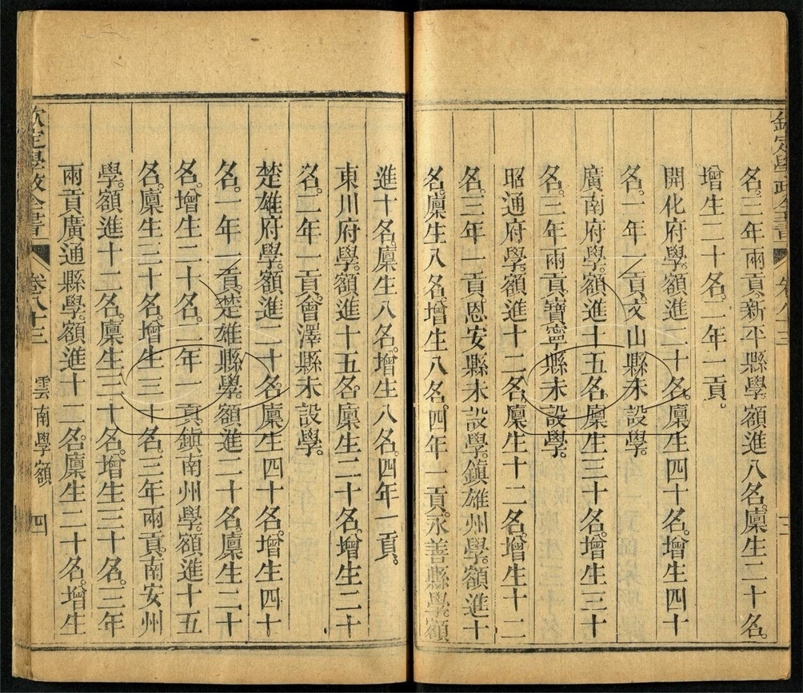 名三年兩貢新平縣學額進八名廩生二十名
增生二十名二年一貢
開化府學額進二十名廩生四十名增生四十
名一年一貢文山縣未設學
廣南府學額進十五名廩生三十名增生三十
名三年兩貢寶寧縣未設學
昭通府學額進十二名廩生十二名增生十二
名三年一貢恩安縣未設學鎮雄州學額進十
名廩生八名增生八名四年一貢永善縣學額
進十名廩生八名增生八名四年一貢
東川府學額進十五名廩生二十名增生二十
名二年一貢會澤縣未設學
楚雄府學額進二十名廩生四十名增生四十
名一年一貢楚雄縣學額進二十名廩生二十
名增生二十名二年一貢鎮南州學額進十五
名廩生三十名增生三十名三年兩貢南安州
學額進十二名廩生三十名增生三十名三年
兩貢廣通縣學額進十二名廩生二十名增生
欽定學政全書 卷八十三 雲南學額 四